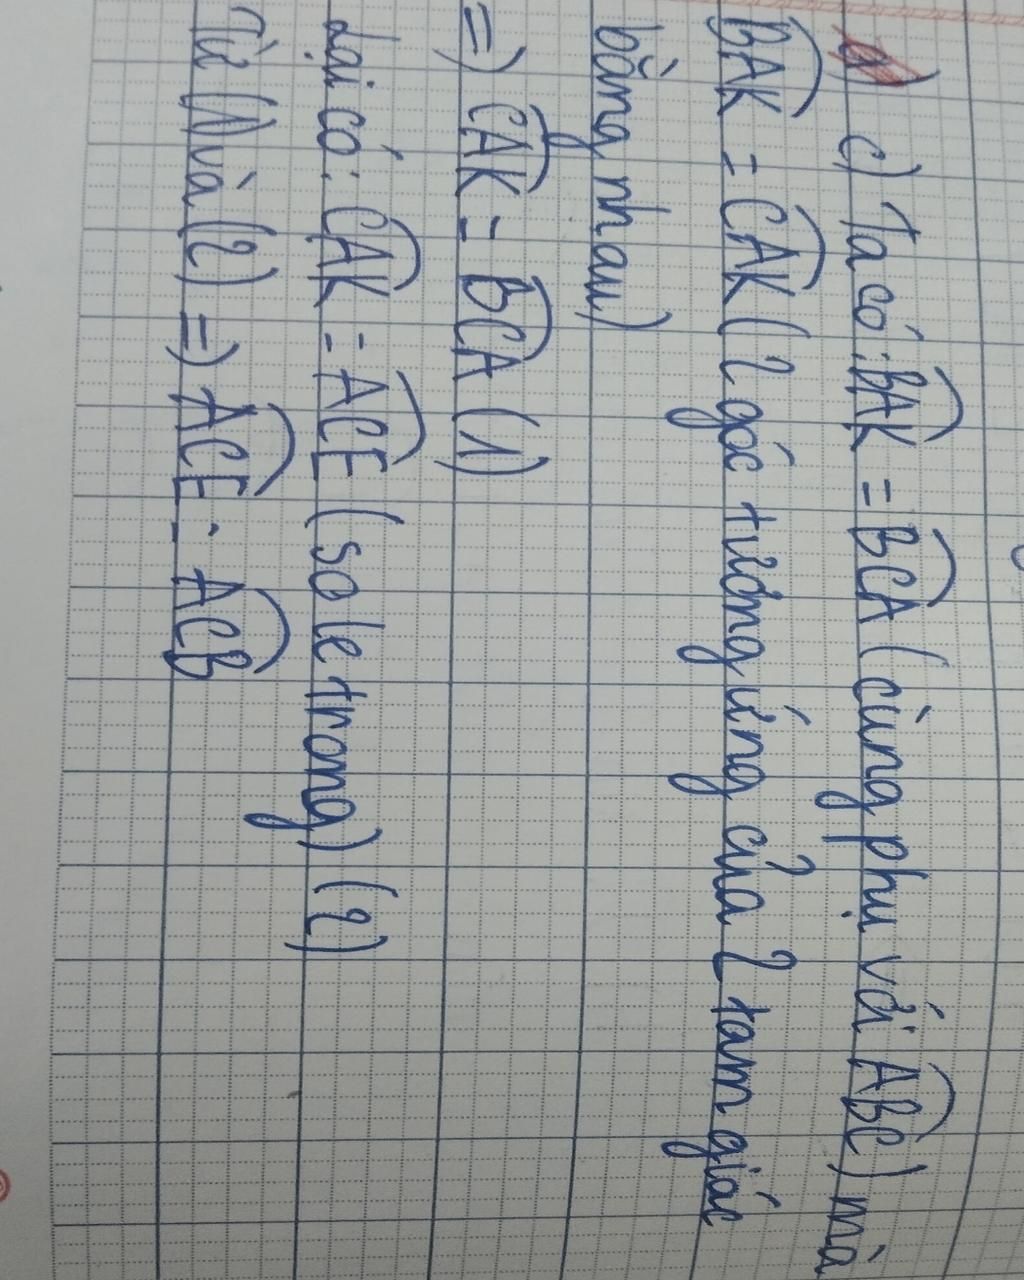 c) Ta có: BAK = BCA (cùng phụ với ABC) mà
BAK = CAK (2 góc tương ứng của 2 tam giác
bằng nhau)
=) CAK = BCA (1)
Lại có: CAK = ACE (so le trong) (2)
Từ (1) và (2) =) ACE = ACB